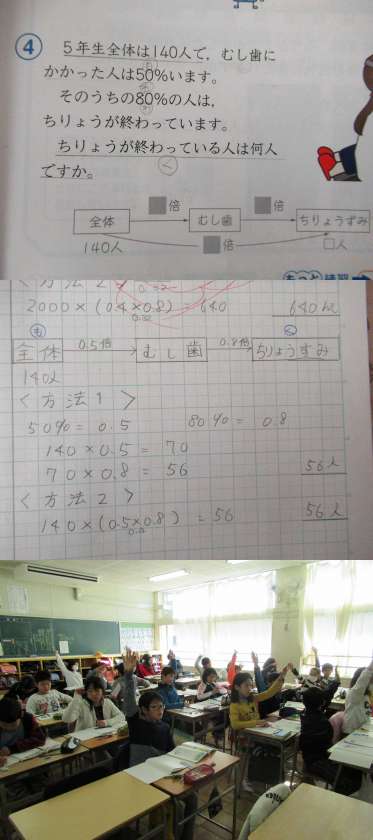 ④ 5年生全体は140人で，むし歯に
かかった人は50%います。
そのうちの80%の人は，
ちりょうが終わっています。
ちりょうが終わっている人は何人
ですか。
く
倍 倍
全体 むし歯 ちりょうずみ
140人 倍 □人
2000×(0.4×0.8)=640
0.32
も く
全体 0.5倍 むし歯 0.8倍 ちりょうすみ
140人
〈方法1〉
50%=0.5 80%=0.8
140×0.5=70
70×0.8=56 56人
〈方法2〉
140×(0.5×0.8)=56 56人